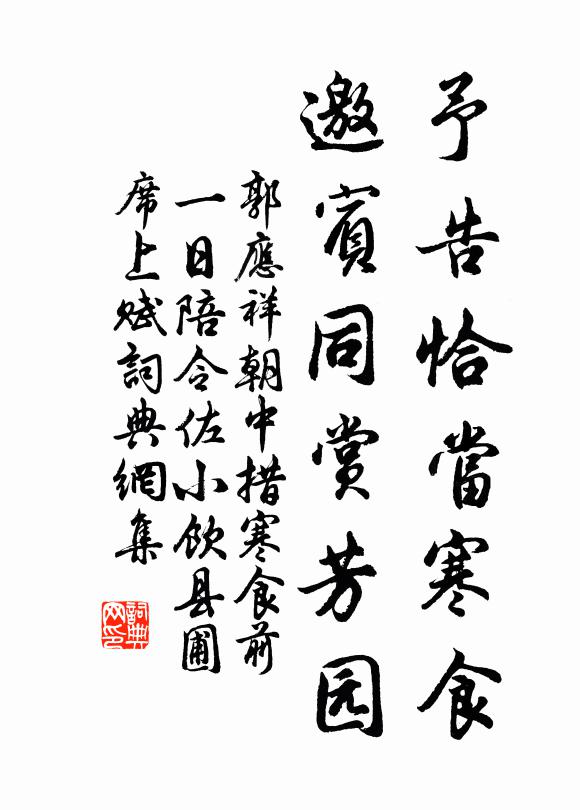 予告恰當寒食
邀賓同賞芳园
郭應祥朝中措寒食前
一日陪令佐小飲县圃
席上赋詞典網集
詞典網印